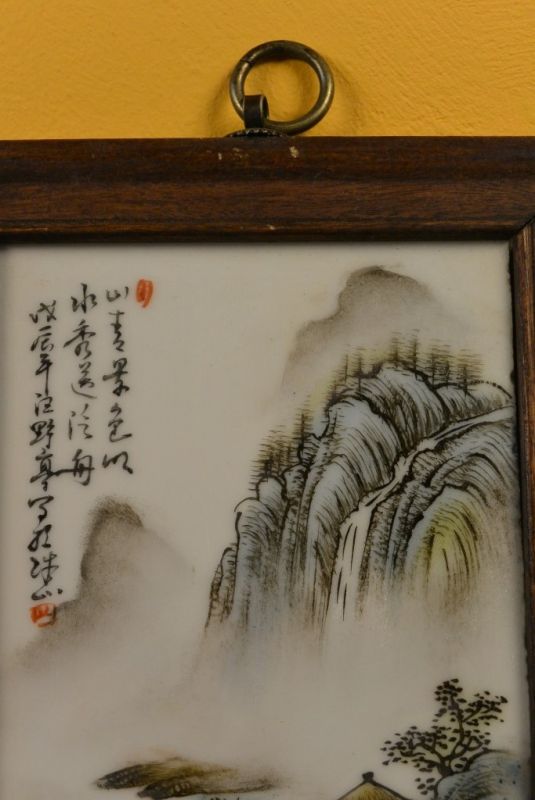 山青景色明
水秀送泛舟
戊辰年汪野亭写於珠山